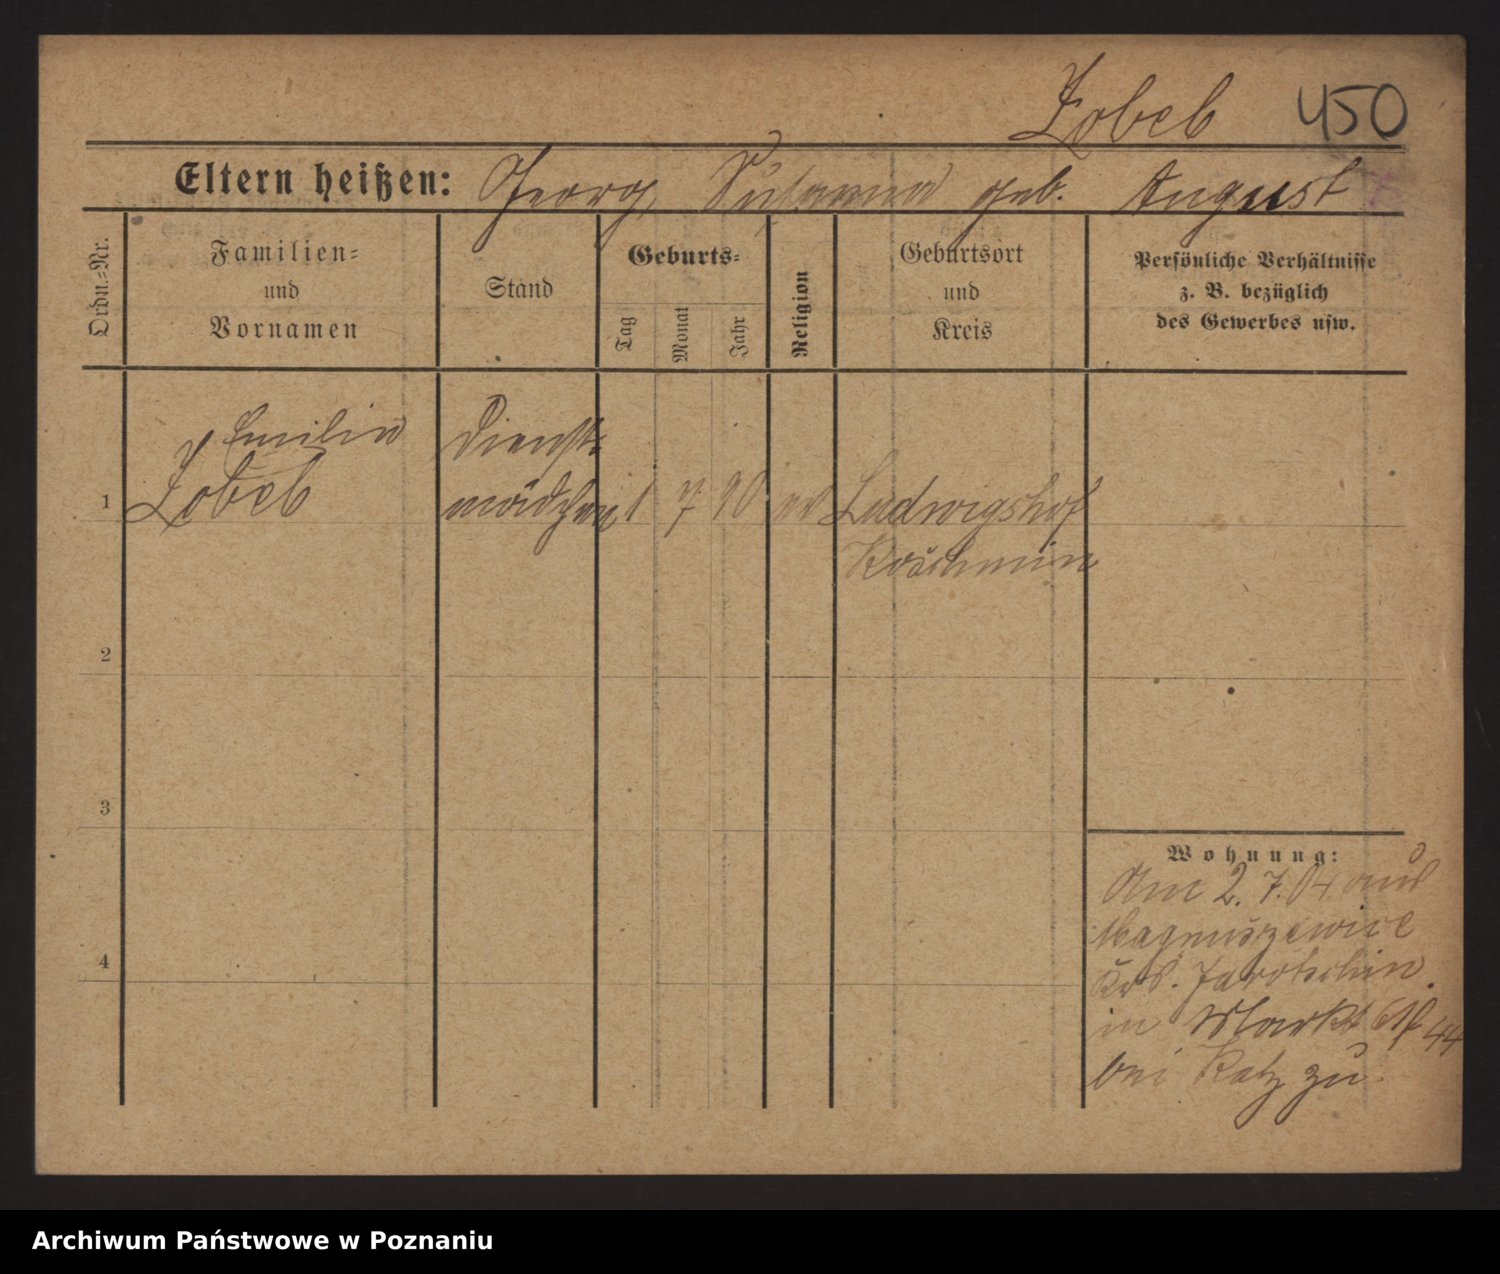 Zobel 450
Eltern heißen: Georg, Susanna geb. August
Ordn.-Nr.
Familien-
und
Vornamen
Stand
Geburts-
Tag
Monat
Jahr
Religion
Geburtsort
und
Kreis
Persönliche Verhältnisse
z. B. bezüglich
des Gewerbes usw.
Emilie Dienst-
1 Zobel mädchen 1 7 90 ev Ludwigshof
Koschmin
2
3
4
Wohnung:
Am 2. 7. 04 aus
Magnuszewice
Krs. Jarotschin
in Markt 44
bei Katz zu
Archiwum Państwowe w Poznaniu